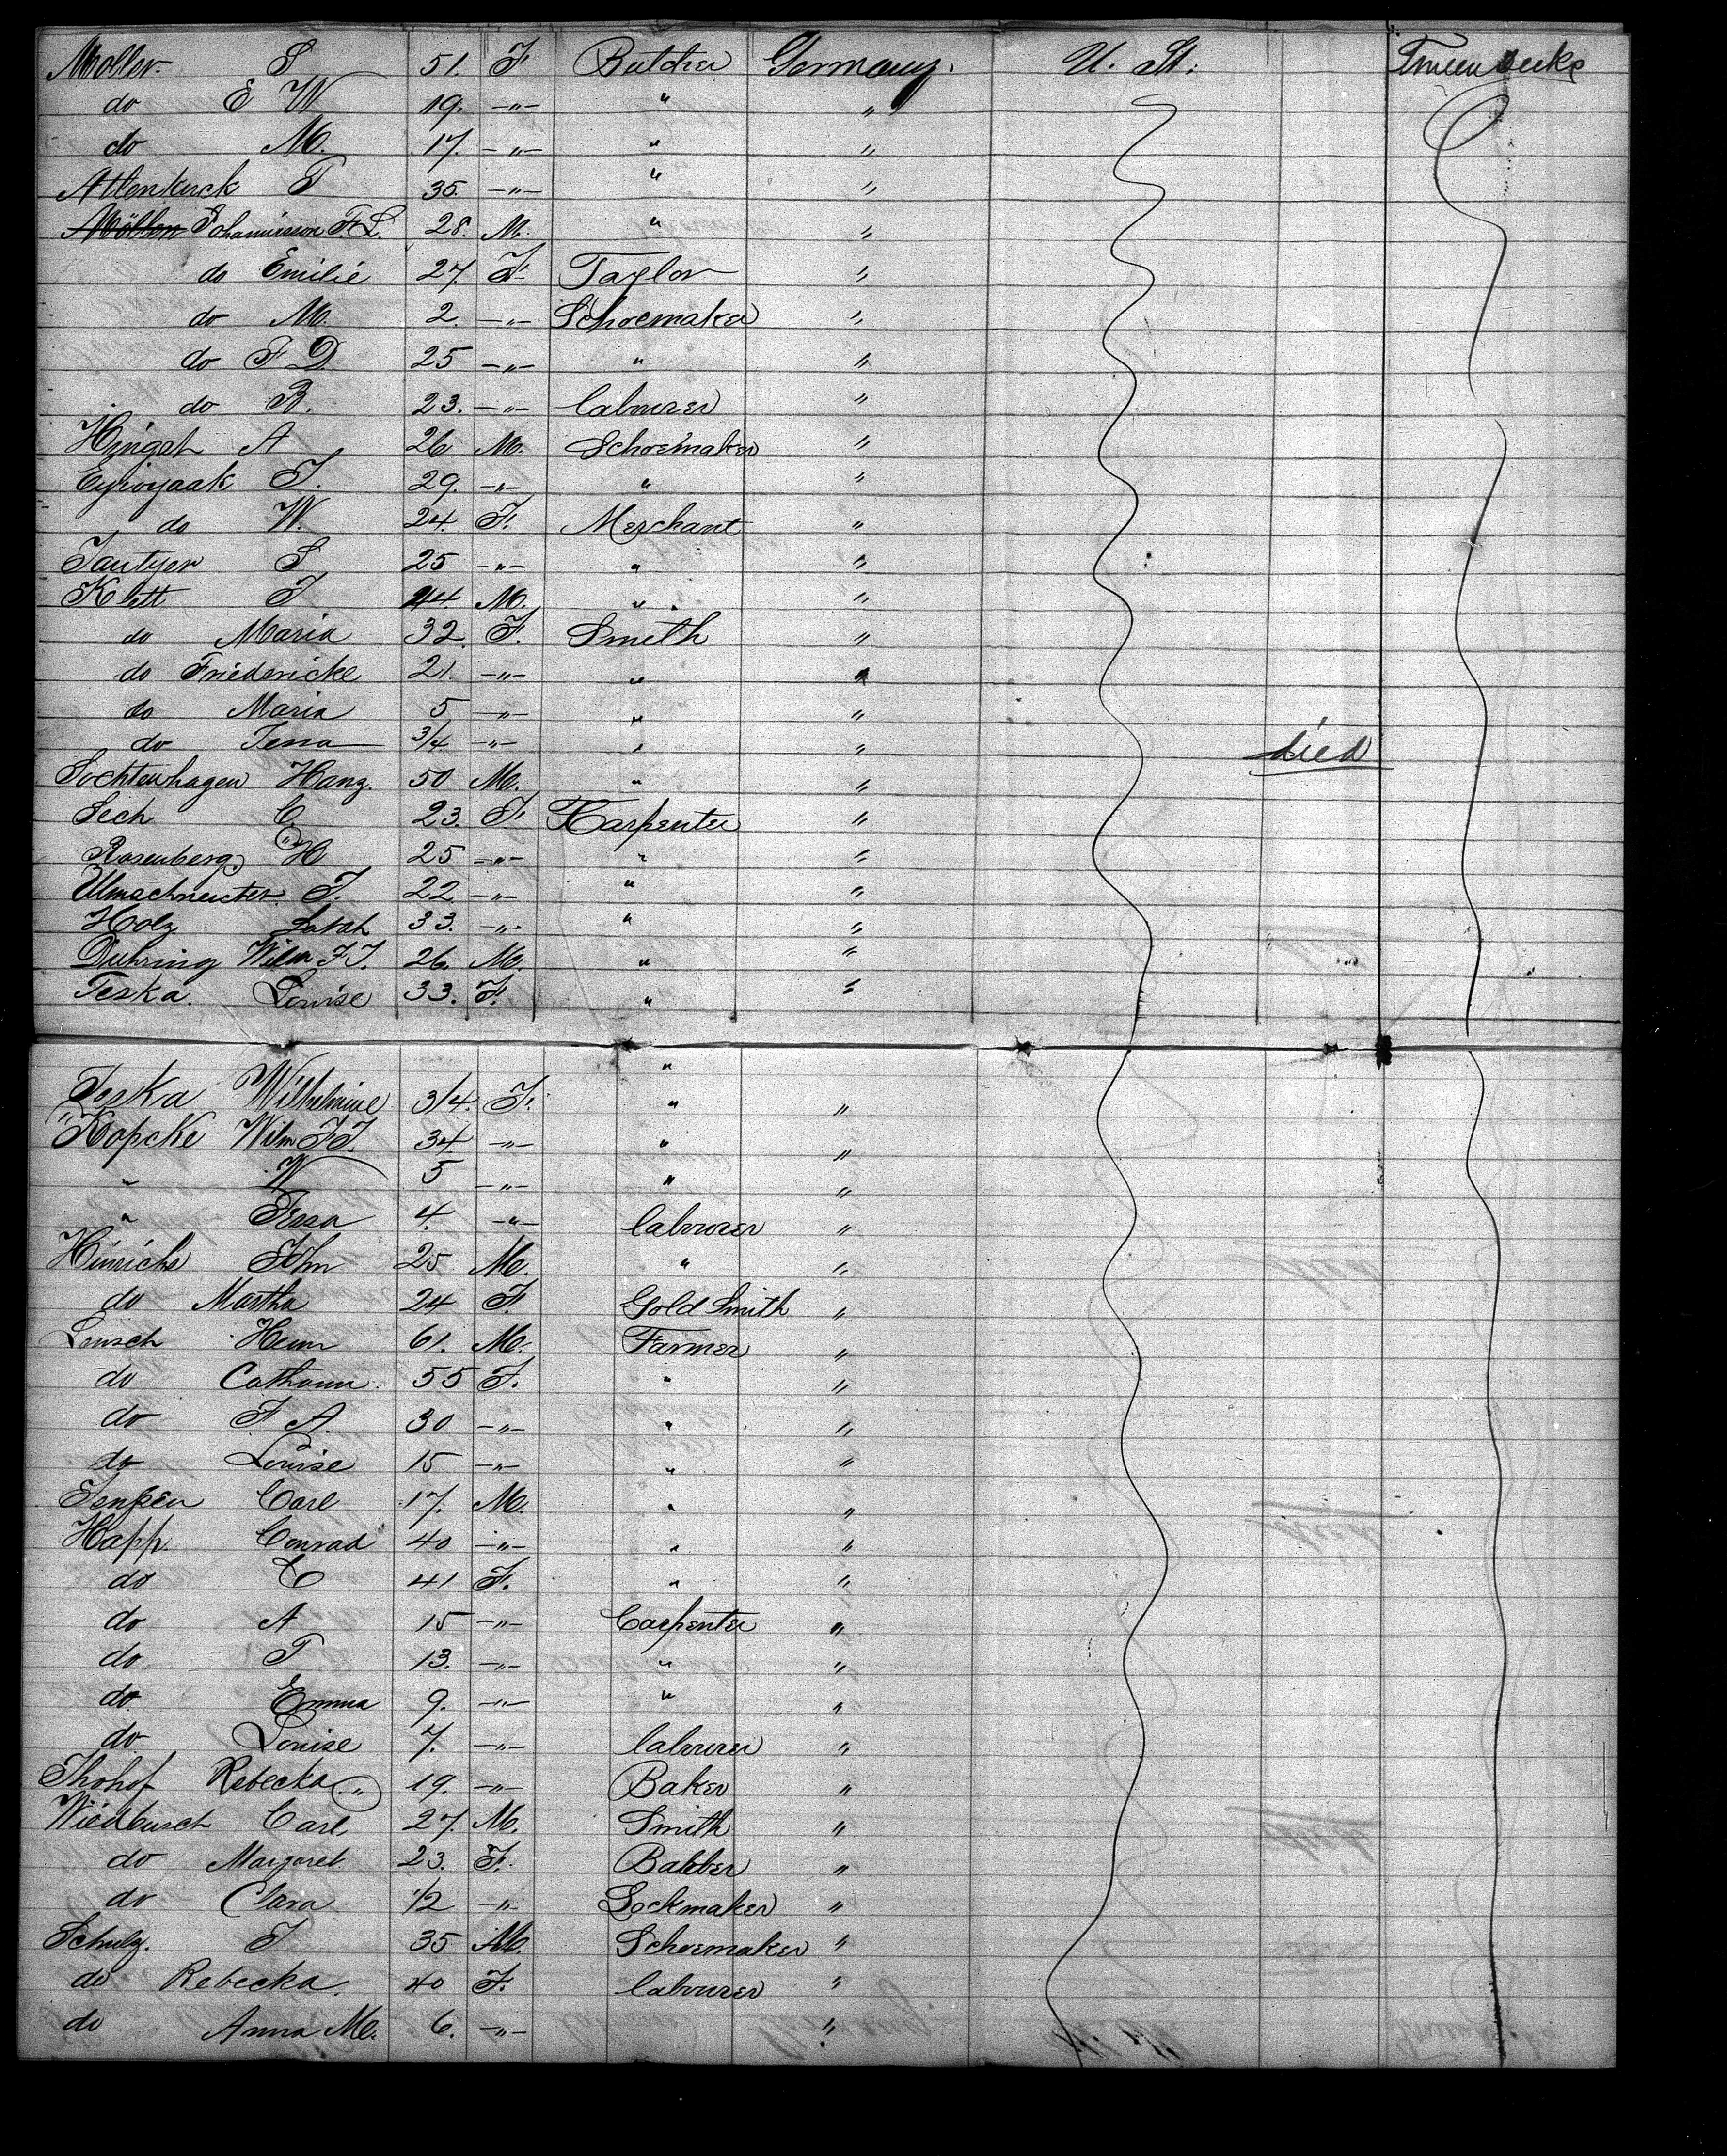 Moller S 51. F Butcher Germany. U. St. Tweendecks
do E W 19. -"- " "
do M. 17. -"- " "
Attenkuck T 35. -"- " "
Möllen Johannsson F. L. 28. M. " "
do Emilie 27. F. Taylor "
do M. 2. -"- Schoemaker "
do F D. 25 -"- " "
do B. 23. -"- labourer "
Hingst A 26 M. Schoemaker "
J. 29. -"- " "
do W. 24. F. Merchant "
S 25 -"- " "
Klett J 44. M. " "
do Maria 32. F. Smith "
do Friedericke 21. -"- " "
do Maria 5 -"- " "
do Tessa 3/4 -"- " " died
Sochtenhagen Hang. 50 M. " "
Sech C. 23. F. Karpenter "
Rosenberg H 25 -"- " "
Ulmschneider J. 22. -"- " "
Holz Sarah 33. -"- " "
Duhring Wilm F J. 26. M. " "
Teska. Louise 33. F. " "
"
Teska Wilhelmine 3/4. F. " "
Kopcke Wilm F J. 34 -"- " "
" W 5 -"- " "
" Tessa 4. -"- labourer "
Hinrichs John 25 M. " "
do Martha 24 F. Gold Smith "
Lousch Hein 61. M. Farmer "
do Cathann. 55 F. " "
do F A. 30 -"- " "
do Louise 15 -"- " "
Jensen Carl 17. M. " "
Happ. Conrad 40 -"- " "
do C 41 F. " "
do A 15 -"- Carpenter "
do. T 13. -"- " "
do. Emma 9. -"- " "
do Louise 7. -"- labourer "
Thohof Rebecka " 19. -"- Baker "
Wiedbusch Carl, 27. M. Smith "
do Margaret. 23. F. Babber "
do Clara 1/2 -"- Sockmaker "
Schulz. J 35 M. Schoemaker "
do Rebecka. 40 F. labourer "
do Anna M. 6. -"- "